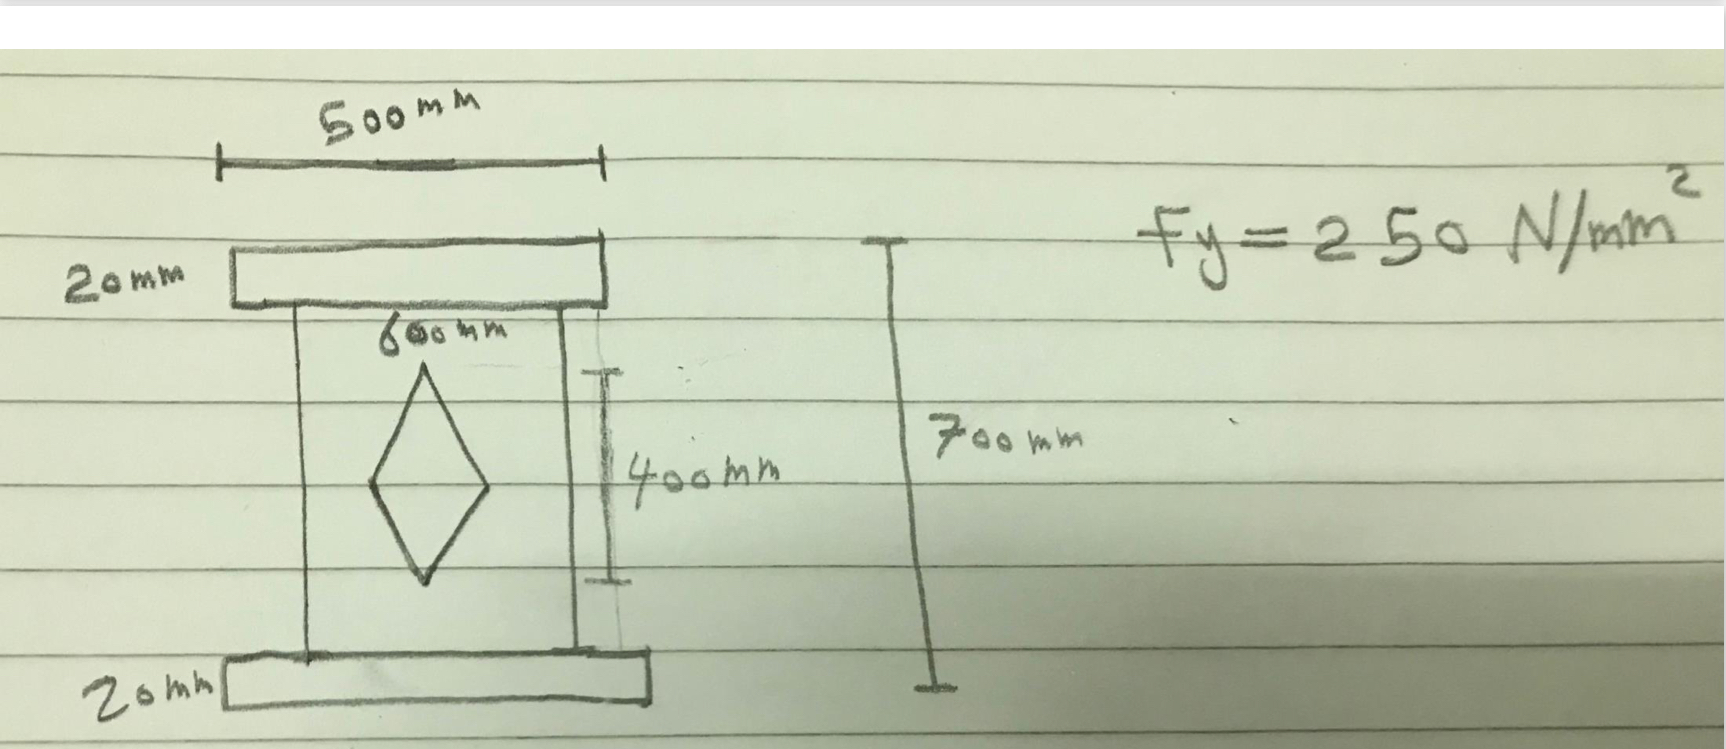 500mm
Fy=250 N/mm²
20mm
600mm
700mm
400mm
20mm